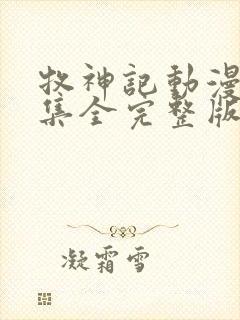 牧神記動漫
集全完整版
凝霜雪